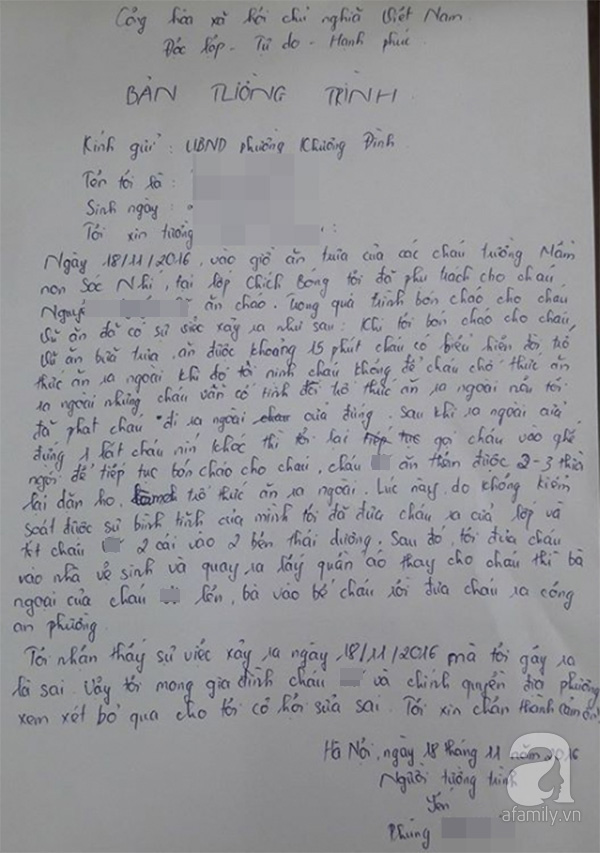 Cộng hòa xã hội chủ nghĩa Việt Nam
Độc lập - Tự do - Hạnh phúc
BẢN TƯỜNG TRÌNH
Kính gửi : UBND phường Khương Đình
Tên tôi là :
Sinh ngày :
Tôi xin tường :
Ngày 18/11/2016, vào giờ ăn trưa của các cháu trường Mầm
non Sóc Nhí, tại lớp Chích Bông tôi đã phụ trách cho cháu
Nguyễ ăn cháo. Trong quá trình bón cháo cho cháu
ăn đã có sự việc xảy ra như sau : Khi tôi bón cháo cho cháu
ăn bữa trưa, ăn được khoảng 15 phút cháu có biểu hiện đòi trớ
thức ăn ra ngoài khi đó tôi nịnh cháu không để cháu chớ thức ăn
ra ngoài nhưng cháu vẫn cố tình đòi trớ thức ăn ra ngoài nên tôi
đã phạt cháu đi ra ngoài cửa đứng. Sau khi ra ngoài cửa
đứng 1 lát cháu nín khóc thì tôi lại tiếp tục gọi cháu vào ghế
ngồi để tiếp tục bón cháo cho cháu, cháu ăn thêm được 2-3 thìa
lại dặn ho, trớ thức ăn ra ngoài. Lúc này, do không kiềm
soát được sự bình tĩnh của mình tôi đã đưa cháu ra cửa lớp và
tát cháu 2 cái vào 2 bên thái dương. Sau đó, tôi đưa cháu
vào nhà vệ sinh và quay ra lấy quần áo thay cho cháu thì bà
ngoại của cháu lên, bà vào bế cháu rồi đưa cháu ra công
an phường.
Tôi nhận thấy sự việc xảy ra ngày 18/11/2016 mà tôi gây ra
là sai. Vậy tôi mong gia đình cháu và chính quyền địa phương
xem xét bỏ qua cho tôi cơ hội sửa sai. Tôi xin chân thành cảm ơn!
Hà Nội, ngày 18 tháng 11 năm 2016
Người tường trình
Yến
Phùng
a
afamily.vn